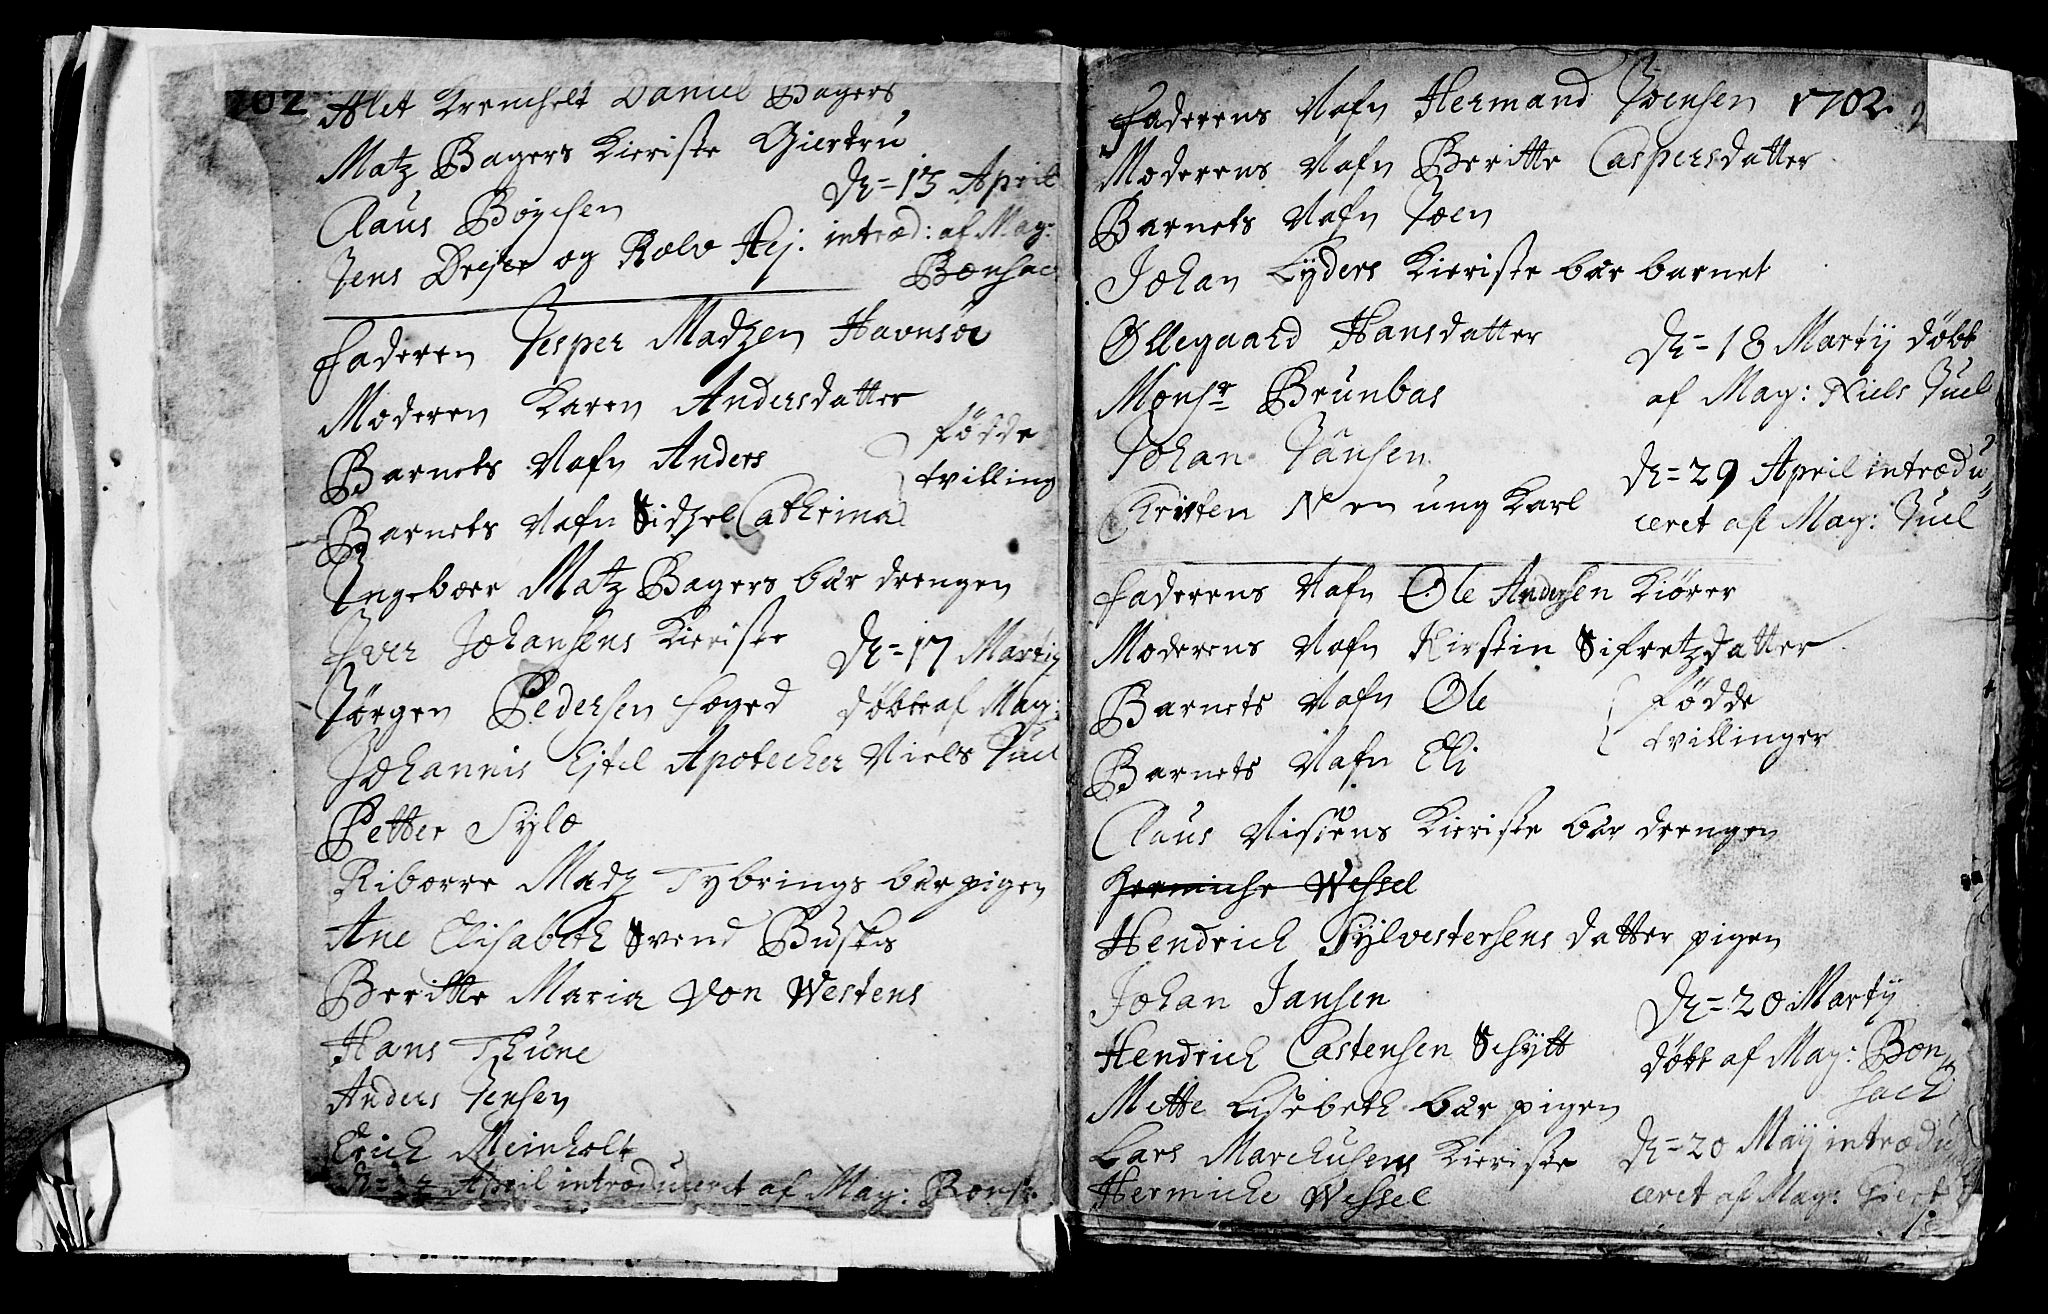 702
Alet Kremhelt Daniel Bagers
Matz Bagers Kieriste Giertru
Claus Böyesen
Jens Dreyer og Rolv Hej.
D. = 13 April
introd: af Mag:
Bonsac
Faderen Jesper Madzen Havnsøe
Moderen Karen Andersdatter
Barnets Nafn Anders
Barnets Nafn Sidzel Cathrina
födde
tvilling
Ingeborr Matz Bagers bar drengen
Iver Johansens Kieriste
Jörgen Pedersen foged
Johannis Ejtel Apotecher
D. = 17 Martij
döbte af Mag:
Niels Juel
Petter Sylo
Riborre Madz Tybrings bar pigen
Ane Elisabeth Svend Buskis
Beritte Maria von Westens
Hans Thüne
Anders Jensen
Erich Meinholt
April introduceret af Mag: Bons
Faderens Nafn Hermand Joensen 1702.
Moderens Nafn Beritte Caspersdatter
Barnets Nafn Joen
Johan Lyders Kieriste bar barnet
Ollegaard Hansdatter
Monsr Brunbas
Johan Jansen
Kristen N en ung Karl
D. = 18 Martij döbt
af Mag: Niels Juel
D. = 29 April introdu
ceret af Mag: Juel
Faderens Nafn Ole Andersen Kiörer
Moderens Nafn Kirstin Sifretzdatter
Barnets Nafn Ole
Barnets Nafn Eli
Födde
tvillinger
Claus Nisens Kieriste bar drengen
Hermiche Wessel
Hendrich Sylvestersens datter pigen
Johan Jansen
Hendrich Castensen Schytt
Mette Lisebeth bar pigen
Lars Marchusens Kieriste
Hermiche Wessel
D. = 20 Martij
döbt af Mag: Bon
sach
D. = 20 Maij introdu
ceret af Mag: